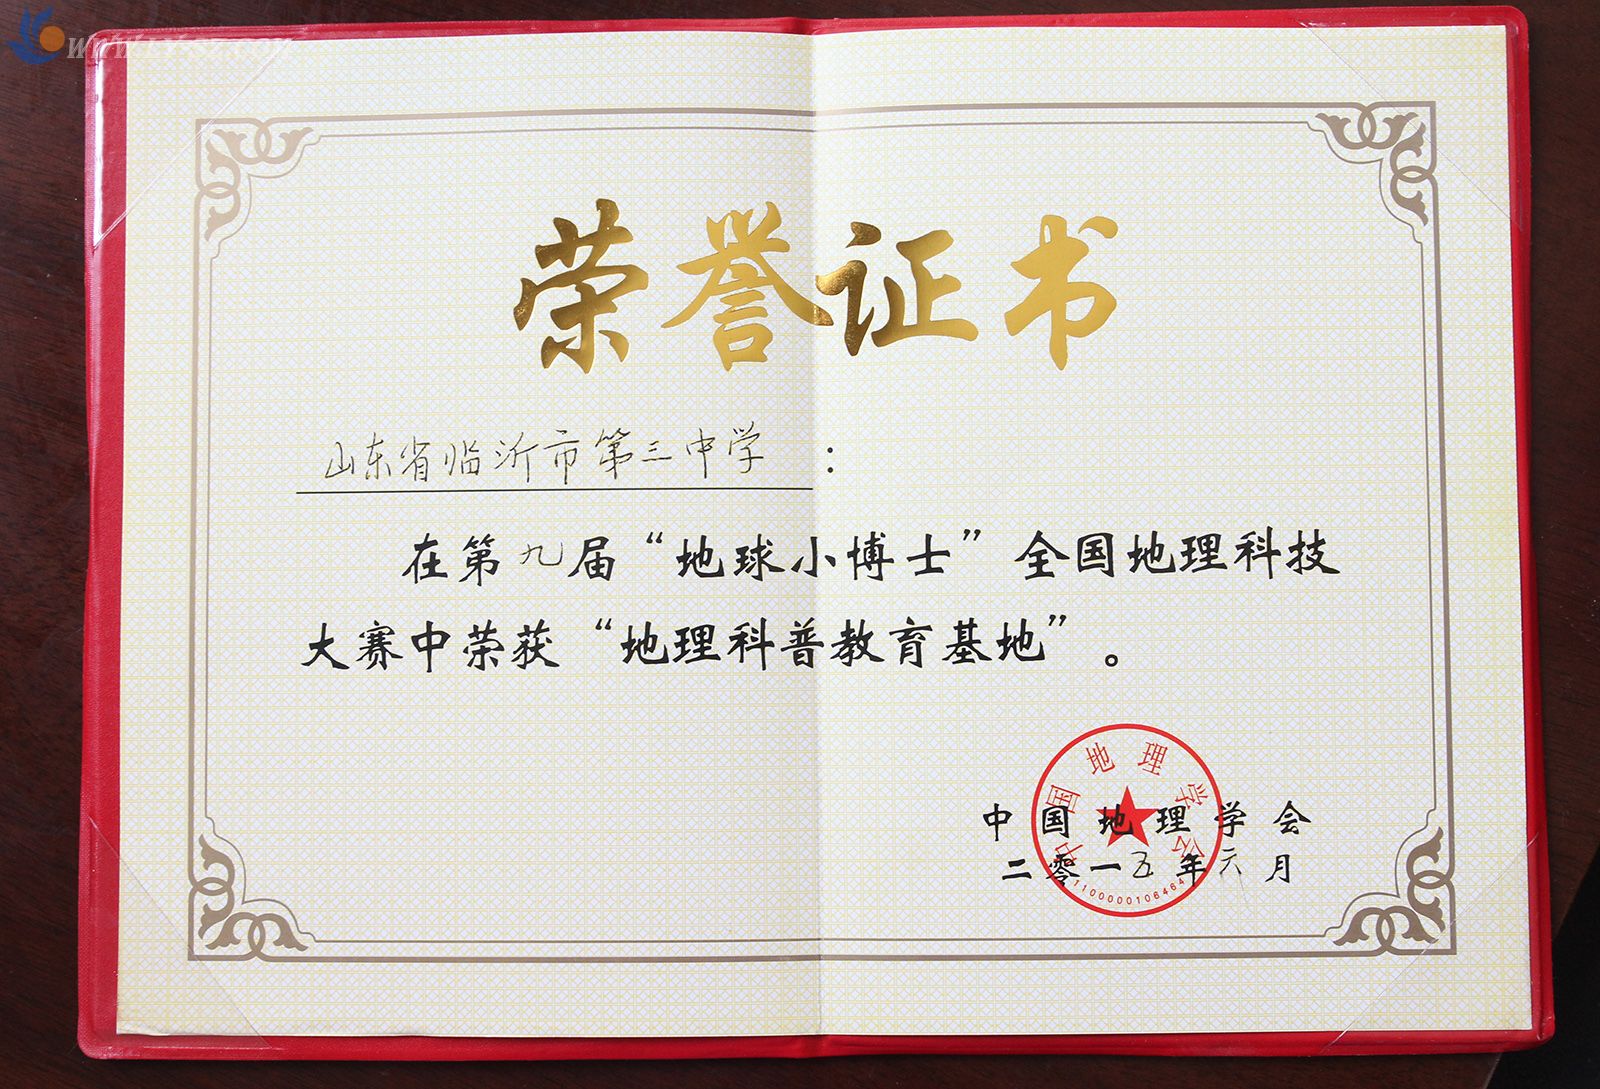 荣誉证书
山东省临沂市第三中学：
在第九届“地球小博士”全国地理科技
大赛中荣获“地理科普教育基地”。
中国地理学会
二零一五年元月
中国地理学会
1100000106464